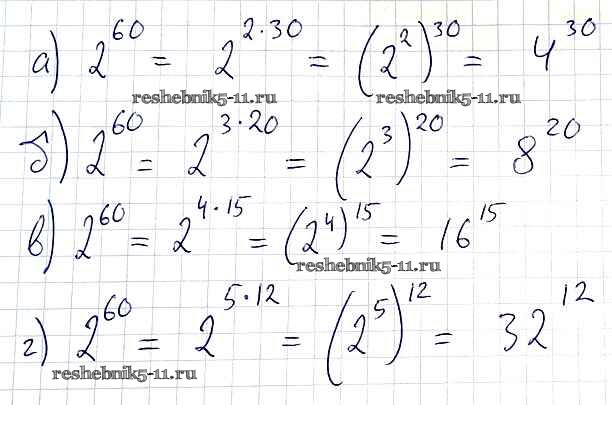 а) 2^60 = 2^(2·30) = (2^2)^30 = 4^30
reshebnik5-11.ru reshebnik5-11.ru
б) 2^60 = 2^(3·20) = (2^3)^20 = 8^20
в) 2^60 = 2^(4·15) = (2^4)^15 = 16^15
reshebnik5-11.ru
г) 2^60 = 2^(5·12) = (2^5)^12 = 32^12
reshebnik5-11.ru